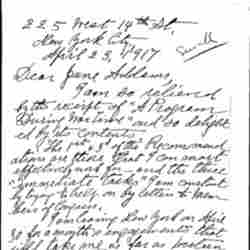 225 West 14th St.
New York City
April 23, 1917
Dear Jane Addams,
I am so relieved
by the receipt of "A Program
During War time" and so delight
ed by its contents.
The 1st & 3d of the Recommend
ations are those that I can most
effectively work for - and the three
"immediate tasks" I am constant
ly trying to help on by letters to mem
bers of Congress.
I am leaving New York on April
30 for a month's engagements that
will take me as far as